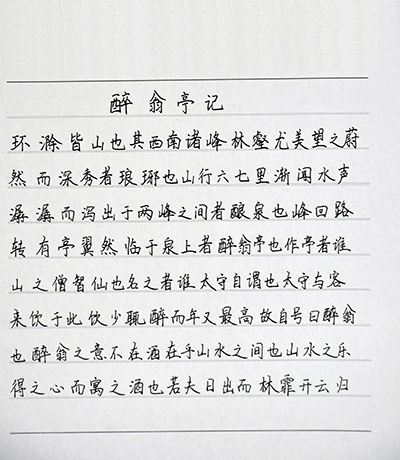 醉翁亭记
环滁皆山也其西南诸峰林壑尤美望之蔚
然而深秀者琅琊也山行六七里渐闻水声
潺潺而泻出于两峰之间者酿泉也峰回路
转有亭翼然临于泉上者醉翁亭也作亭者谁
山之僧智仙也名之者谁太守自谓也太守与客
来饮于此饮少辄醉而年又最高故自号曰醉翁
也醉翁之意不在酒在乎山水之间也山水之乐
得之心而寓之酒也若夫日出而林霏开云归